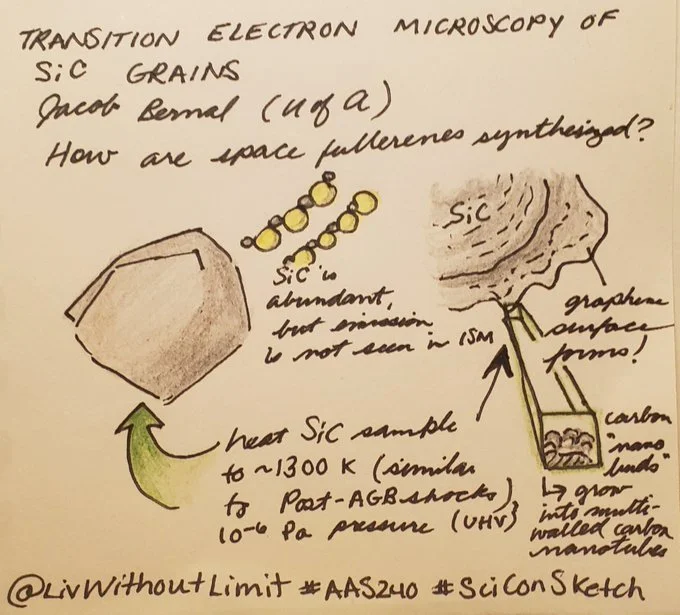 TRANSITION ELECTRON MICROSCOPY OF
SiC GRAINS
Jacob Bernal (U of A)
How are space fullerenes synthesized?
SiC is
abundant,
but emission
is not seen in ISM
SiC
graphene
surface
forms!
heat SiC sample
to ~1300 K (similar
to Post-AGB shocks)
10-6 Pa pressure (UHV)
carbon
"nano
buds"
↳ grow
into multi-
walled carbon
nanotubes
@LivWithoutLimit #AAS240 #SciConSketch